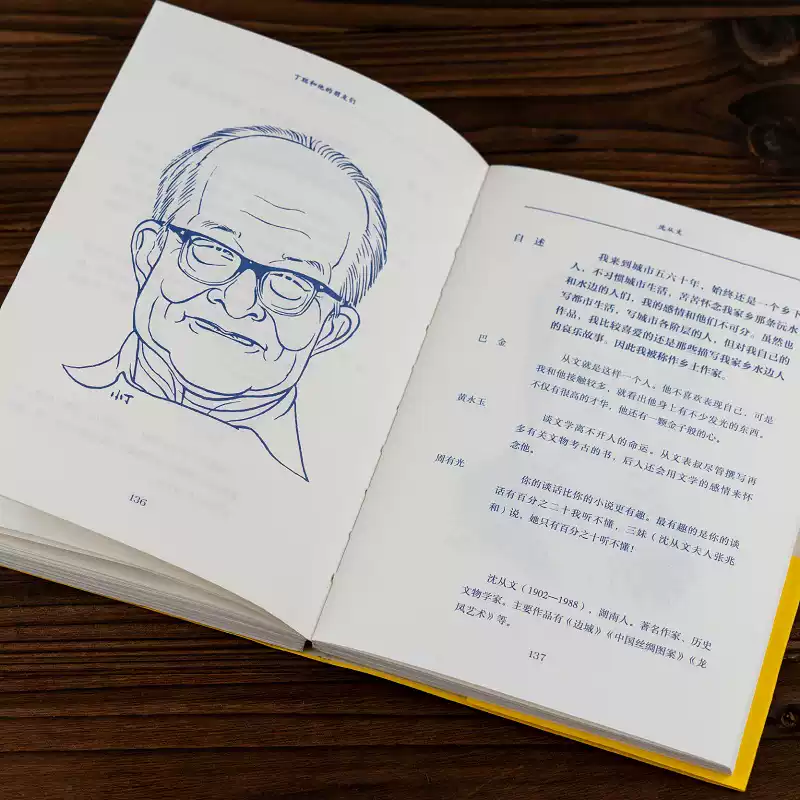 丁聪和他的朋友们
小丁
136
沈从文
自 述
我来到城市五六十年，始终还是一个乡下
人，不习惯城市生活，苦苦怀念我家乡那条沅水
和水边的人们，我的感情和他们不可分。虽然也
写都市生活，写城市各阶层的人，但对我自己的
作品，我比较喜爱的还是那些描写我家乡水边人
的哀乐故事。因此我被称作乡土作家。
巴 金
从文就是这样一个人，他不喜欢表现自己，可是
我和他接触较多，就看出他身上有不少发光的东西。
不仅有很高的才华，他还有一颗金子般的心。
黄永玉
谈文学离不开人的命运。从文表叔尽管撰写再
多有关文物考古的书，后人还会用文学的感情来怀
念他。
周有光
你的谈话比你的小说更有趣。最有趣的是你的谈
话有百分之二十我听不懂，三妹（沈从文夫人张兆
和）说，她只有百分之十听不懂！
沈从文（1902—1988），湖南人。著名作家、历史
文物学家。主要作品有《边城》《中国丝绸图案》《龙
凤艺术》等。
137